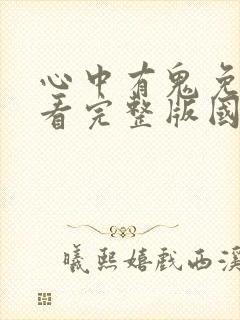 心中有鬼免
看完整版国
曦熙嬉戏西溪